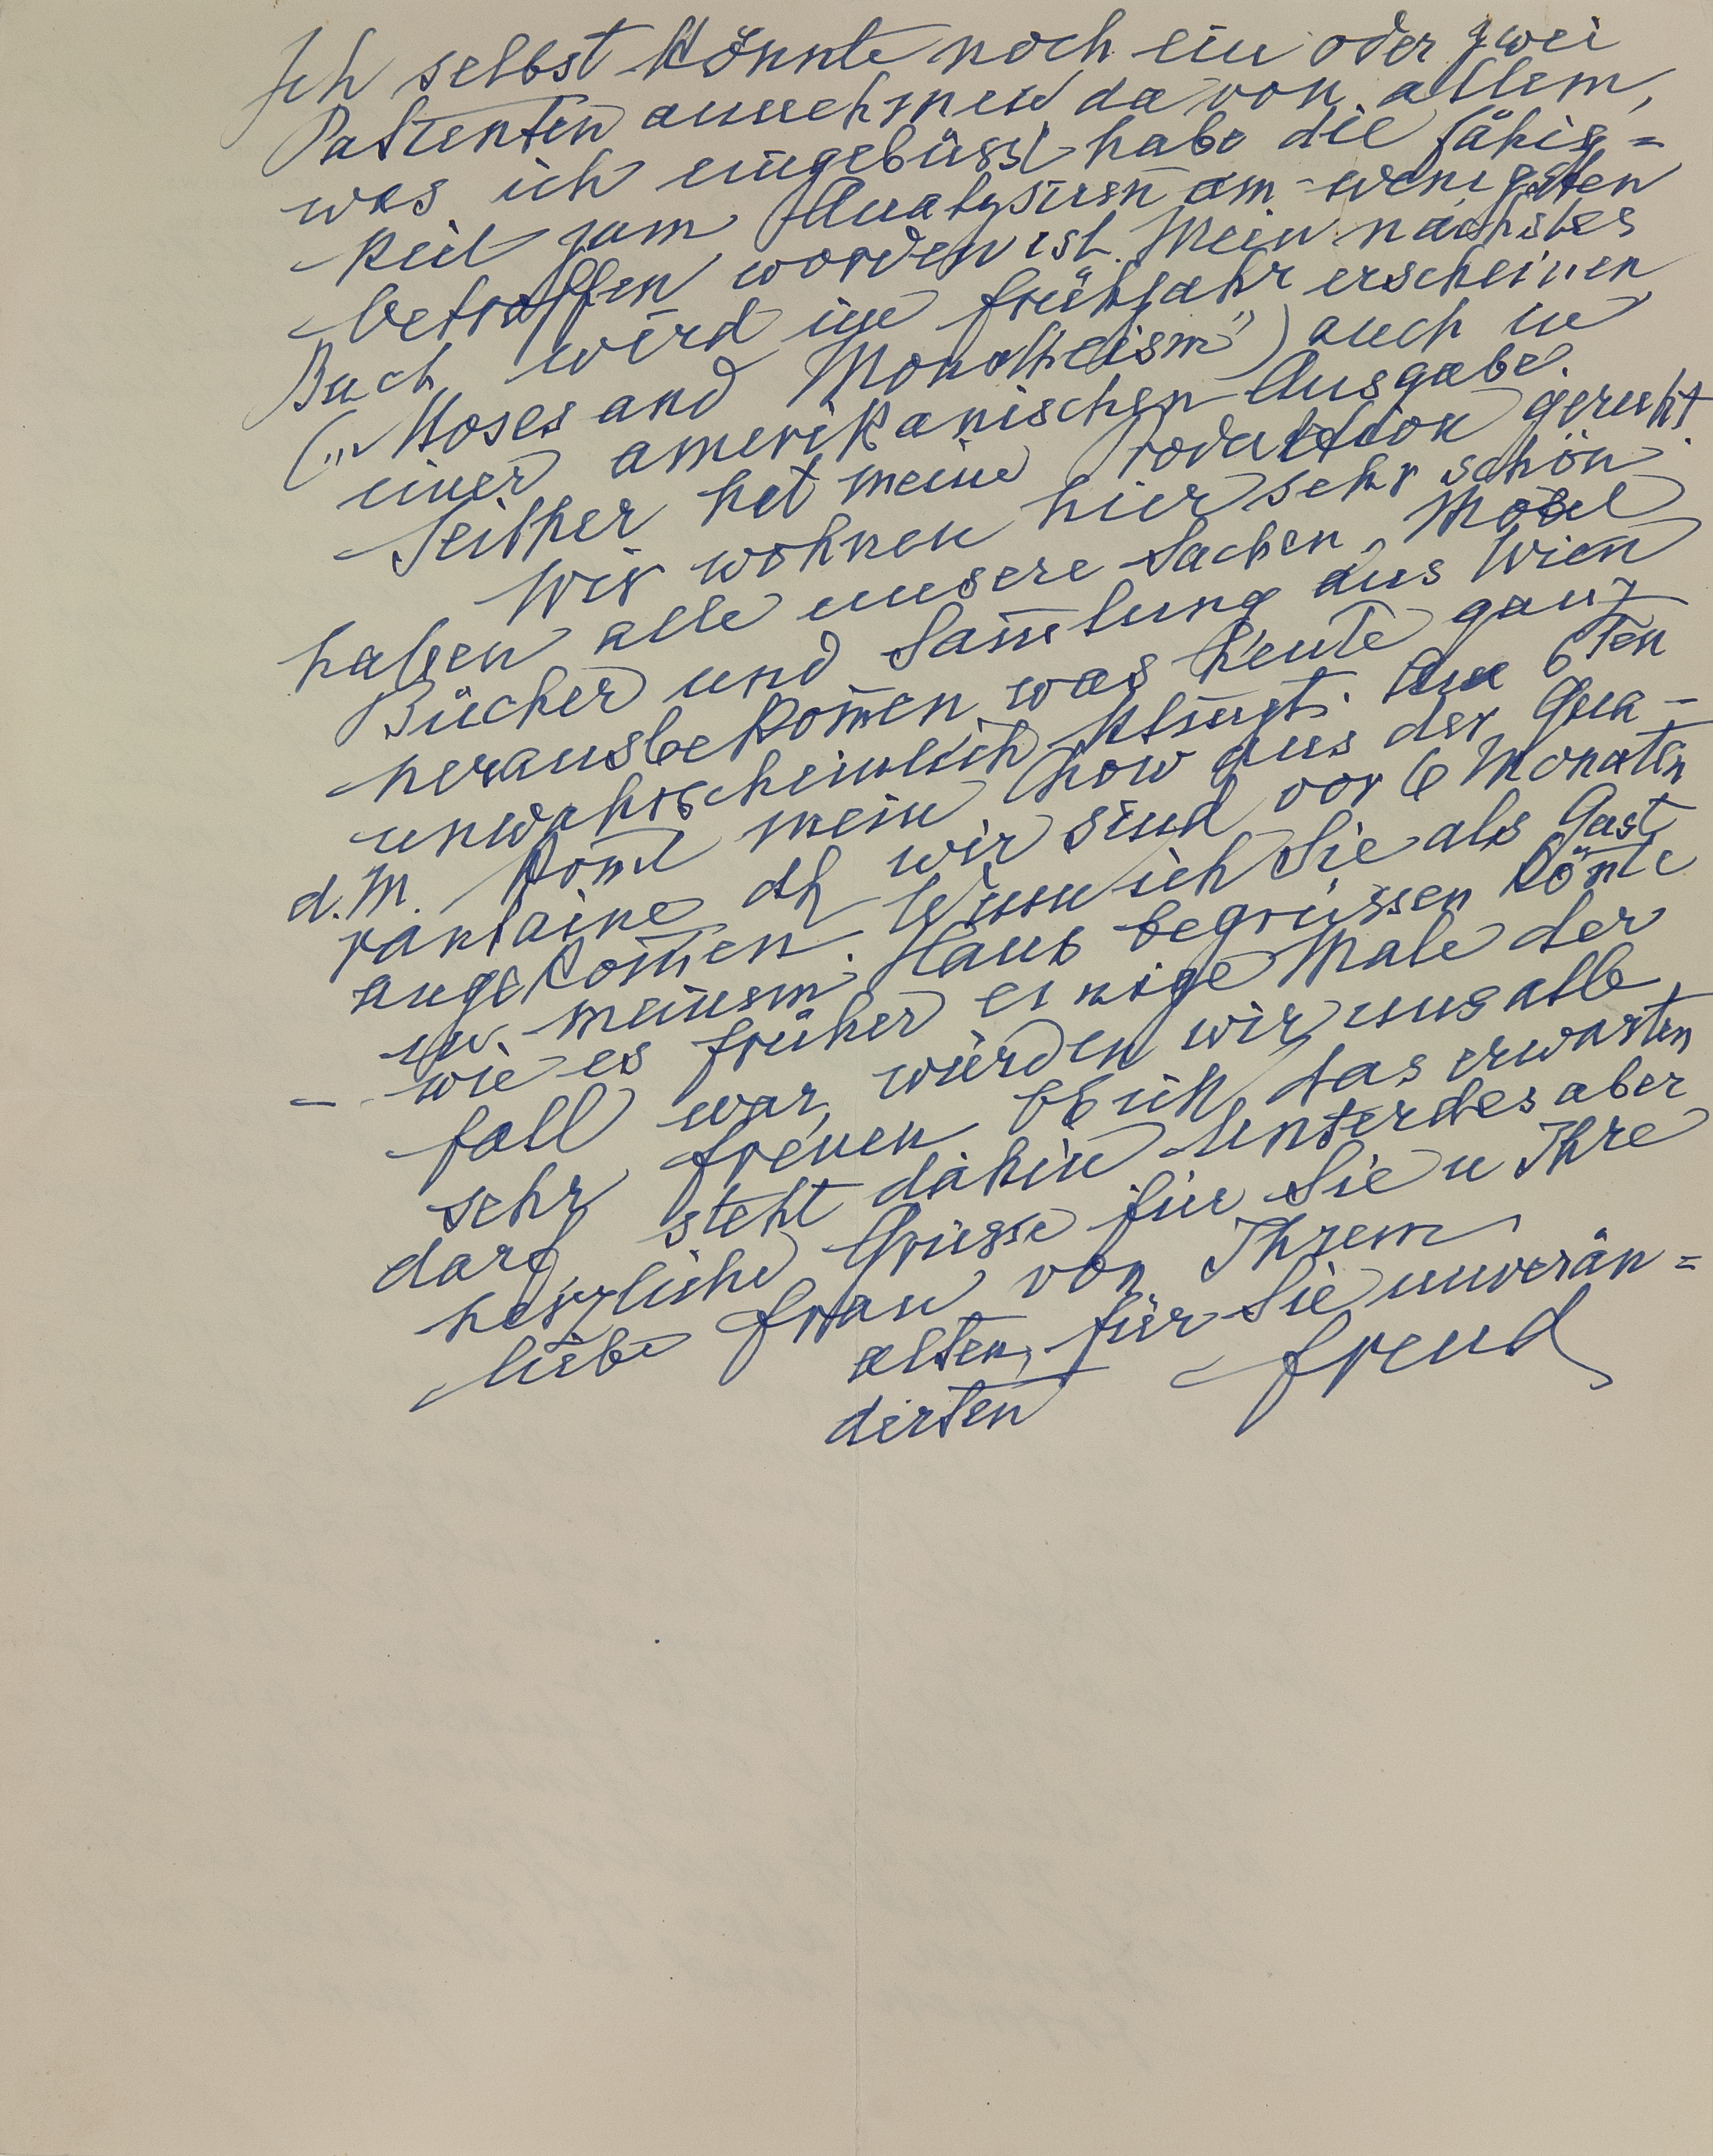 Ich selbst könnte noch ein oder zwei
Patienten annehmen da von allem,
was ich eingebüsst habe die Fähig=
keit zum Analysiren am wenigsten
betroffen worden ist. Mein nächstes
Buch wird im Frühjahr erscheinen
(„Moses and Monotheism") auch in
einer amerikanischen Ausgabe.
Seither hat meine Produktion geruht.
Wir wohnen hier sehr schön
haben alle unsere Sachen, Möbel
Bücher und Sam̅lung aus Wien
herausbekom̅en, was heute ganz
unwahrscheinlich klingt. Am 6ten
d. M. kom̅t mein Chow aus der Qua-
rantaine, dh wir sind vor 6 Monaten
angekom̅en. Wenn ich Sie als Gast
in meinem Haus begrüssen kön̅te
– wie es früher einige Male der
Fall war, würden wir uns alle
sehr freuen. Ob ich das erwarten
darf, steht dahin. Unterdes aber
herzliche Grüsse für Sie u Ihre
liebe Frau von Ihrem
alten, für Sie unverän=
derten Freud